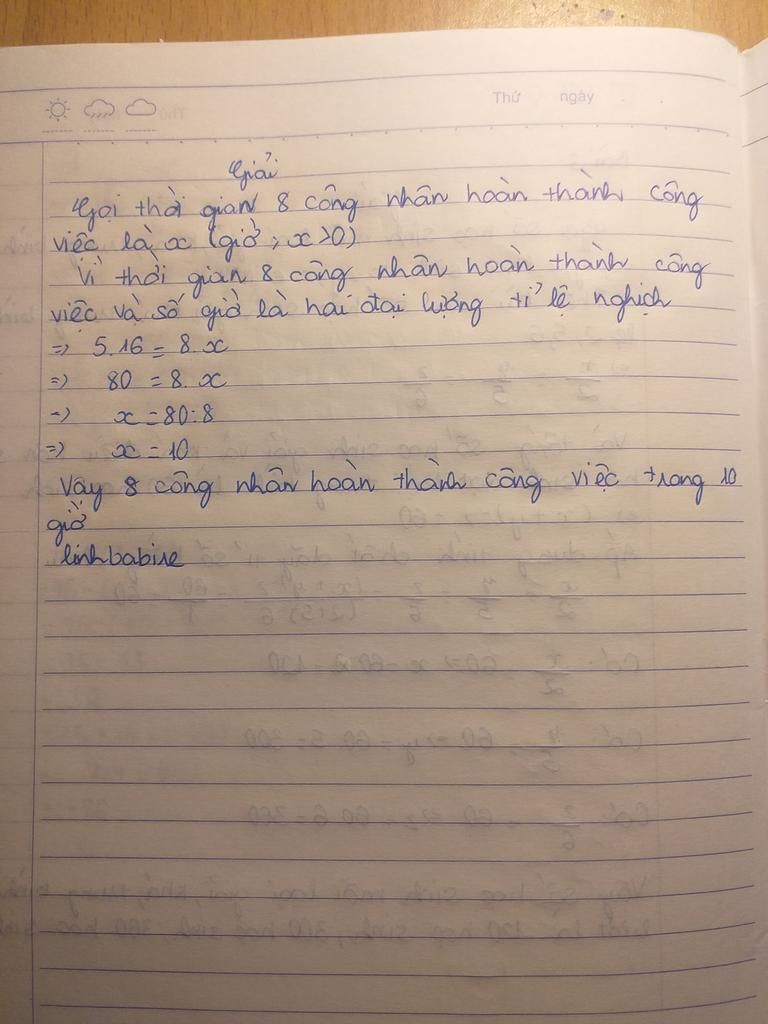 Thứ ngày
Giải
Gọi thời gian 8 công nhân hoàn thành công
việc là x (giờ; x>0)
Vì thời gian 8 công nhân hoàn thành công
việc và số giờ là hai đại lượng tỉ lệ nghịch
=> 5.16 = 8.x
=> 80 = 8.x
=> x = 80:8
=> x = 10
Vậy 8 công nhân hoàn thành công việc trong 10
giờ